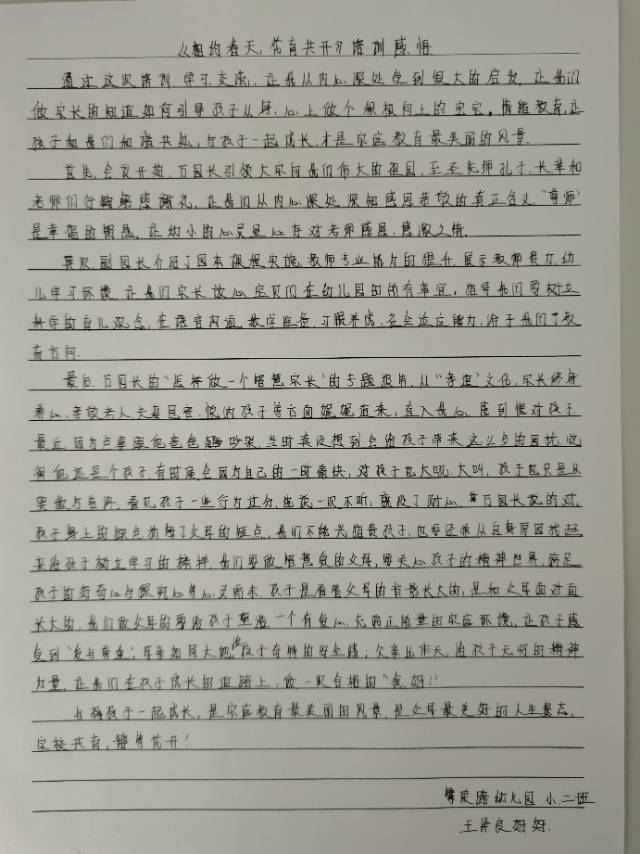 《相约春天,花育共开》培训感悟
通过这次培训学习交流,让我从内心深处受到很大的启发,让我们
做家长的知道如何引导孩子从身、心上做个积极向上的宝宝。情绪教育,让
孩子和我们和谐共处,与孩子一起成长,才是家庭教育最美丽的风景.
首先,会议开始,万园长引领大家向我们伟大的祖国,至圣先师孔子,长辈和
老师们行鞠躬感谢礼,让我们从内心深处深知感恩教育的真正含义."尊师"
是幸福的钥匙,让幼小的心灵里心存对老师感恩、感激之情.
其次,副园长介绍了园本课程实施,教师专业能力的提升,展示教师魅力,幼
儿学习环境,让我们家长放心宝贝们在幼儿园的所有事宜。指导我们要树立
科学的育儿观念,在语言沟通,数学准备,习惯养成,社会适应能力,给予我们了教
育方向.
最后,万园长的"怎样做一个智慧家长"的专题报告,从"孝道"文化,家长修身
养心,孝敬老人,夫妻恩爱,悦纳孩子等方面娓娓道来,直入我心,感到愧对孩子.
最近,因为点事跟他爸爸吵架,当时真没想到会给孩子带来这么多的困扰,觉
得他还是个孩子,有时候会因为自己的一时豪快,对孩子也大吼大叫,孩子也只是从
看见孩子一些行为过分,也说一次不听,就没了耐心,万园长说的对,
孩子身上的缺点折射了父母的缺点,我们不能光指责孩子,也要还带从自身原因找起,
来给孩子树立学习的榜样,我们要做智慧爱的父母,要关心孩子的精神世界,满足
孩子的好奇心与探究心,身心灵而来.孩子是看着父母的背影长大的,是和父母面对面
长大的,我们做父母的要给孩子塑造一个有爱心、充满正能量的家庭环境,让孩子感
受到"爱与尊重",母亲如同大地,给孩子奇特的安全感;父亲比作天,给孩子无穷的精神
力量,让我们在孩子成长的道路上,做一双合格的"爸妈!"
与孩子一起成长,是家庭教育最美丽的风景,是父母最美好的人生意志,
家校共育,静待花开!
荣路幼儿园 小二班
王良妈妈.